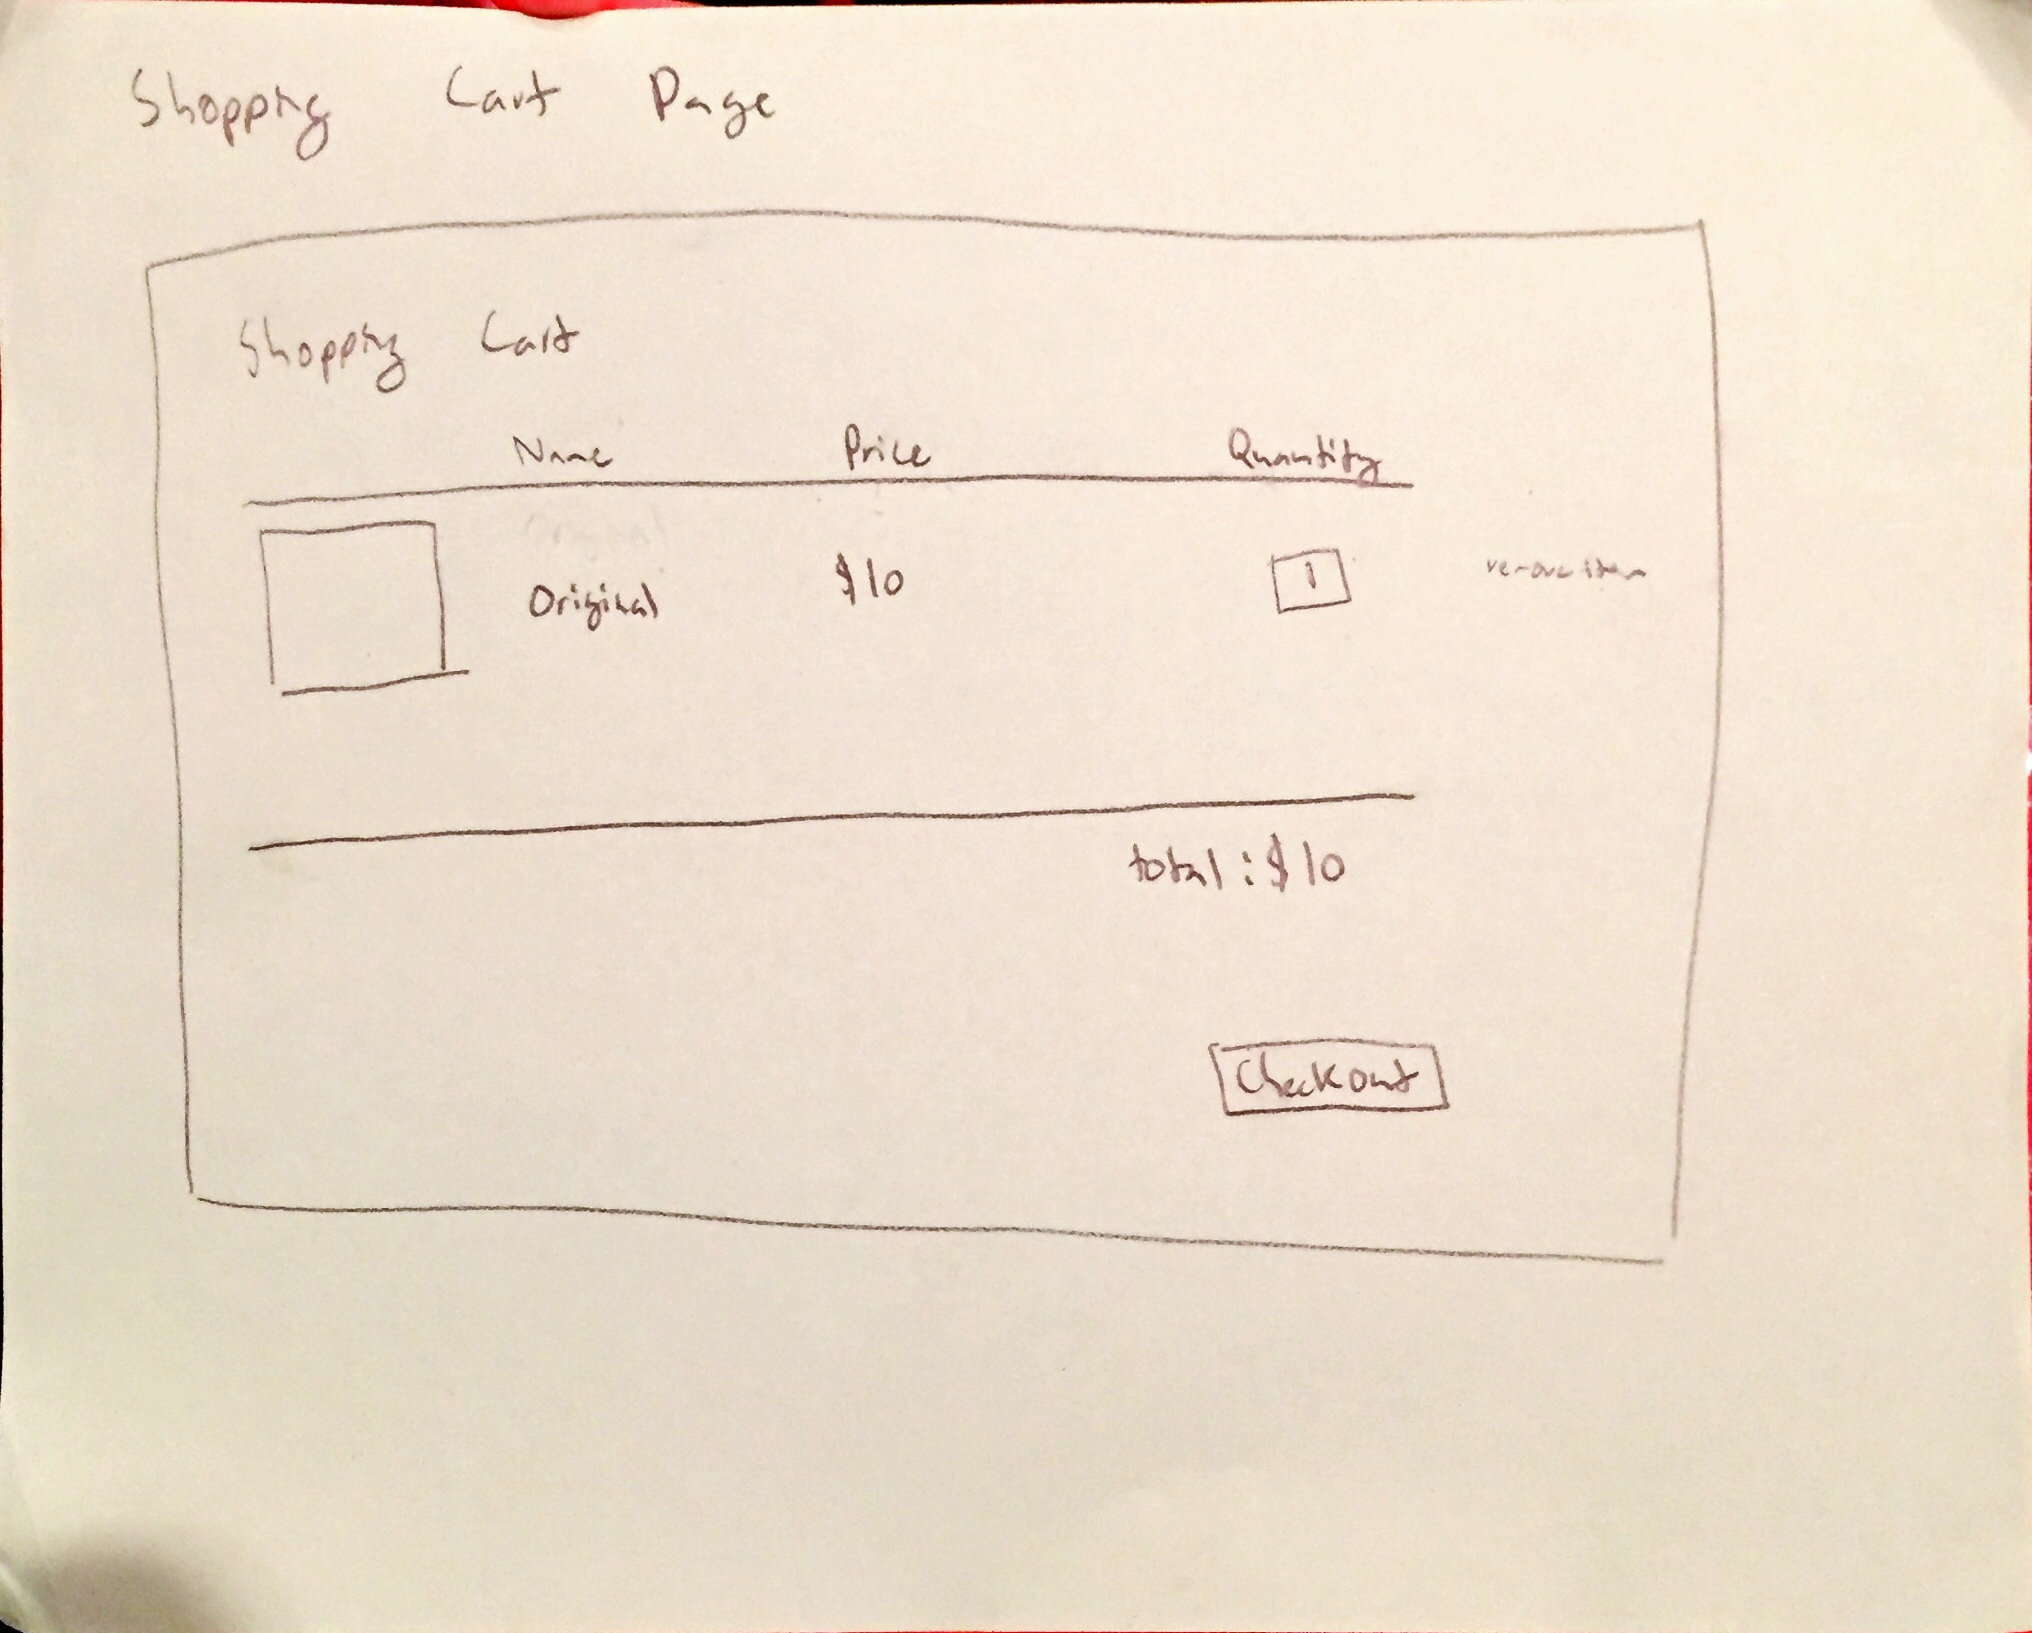 Shopping Cart Page
Shopping Cart
Name Price Quantity
Original $10 1 remove item
total: $10
Checkout